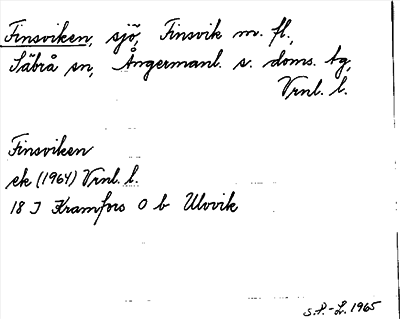 Finsviken, sjö, Finsvik m. fl.,
Säbrå sn, Ångermanl. s. doms. tg,
Vrnl. l.
Finsviken
ek (1964) Vrnl. l.
18 I Kramfors O b Ulvvik
S.P.-L. 1965